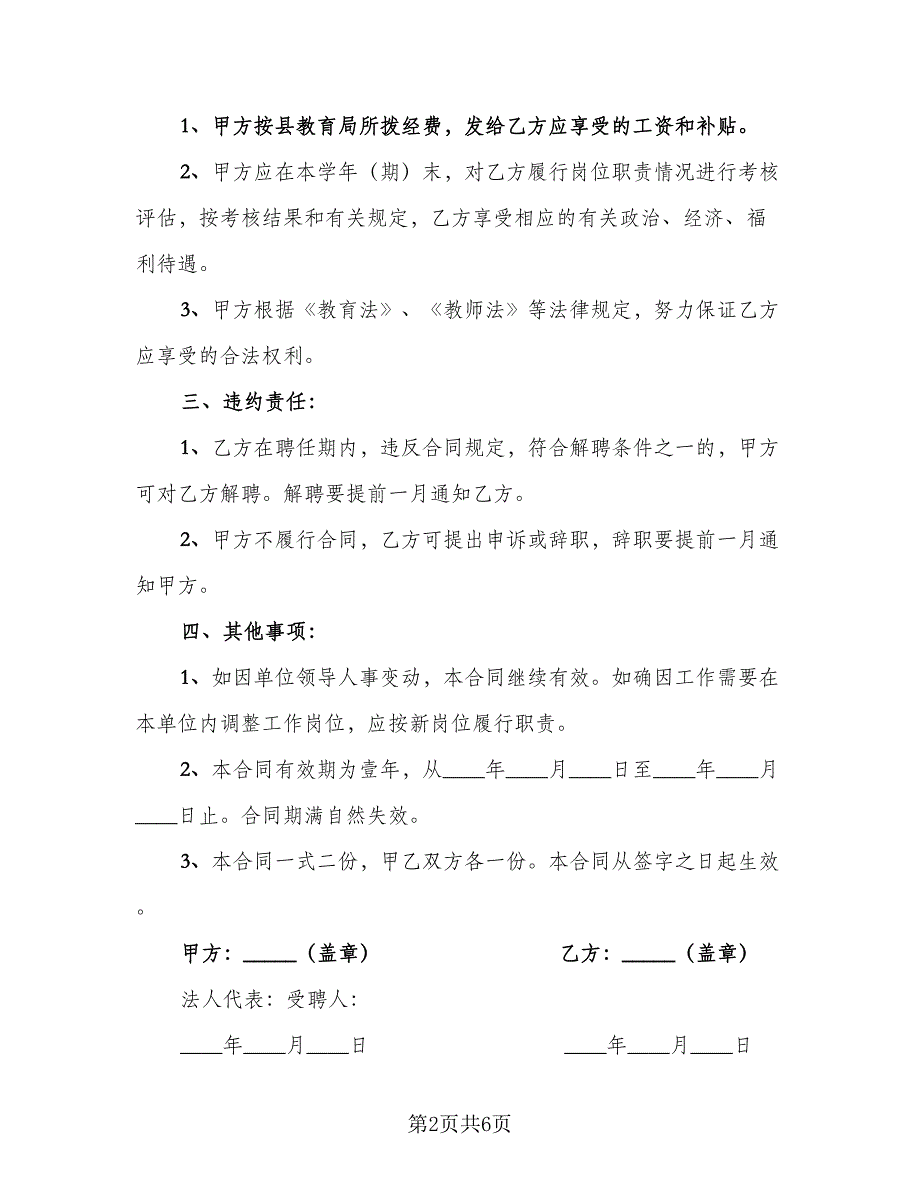 1、甲方按县教育局所拨经费，发给乙方应享受的工资和补贴。
2、甲方应在本学年（期）末，对乙方履行岗位职责情况进行考核
评估，按考核结果和有关规定，乙方享受相应的有关政治、经济、福
利待遇。
3、甲方根据《教育法》、《教师法》等法律规定，努力保证乙方
应享受的合法权利。
三、违约责任：
1、乙方在聘任期内，违反合同规定，符合解聘条件之一的，甲方
可对乙方解聘。解聘要提前一月通知乙方。
2、甲方不履行合同，乙方可提出申诉或辞职，辞职要提前一月通
知甲方。
四、其他事项：
1、如因单位领导人事变动，本合同继续有效。如确因工作需要在
本单位内调整工作岗位，应按新岗位履行职责。
2、本合同有效期为壹年，从____年____月____日至____年____月
____日止。合同期满自然失效。
3、本合同一式二份，甲乙双方各一份。本合同从签字之日起生效
。
甲方：_____（盖章） 乙方：_____（盖章）
法人代表：受聘人：
____年____月____日 ____年____月____日
第2页共6页